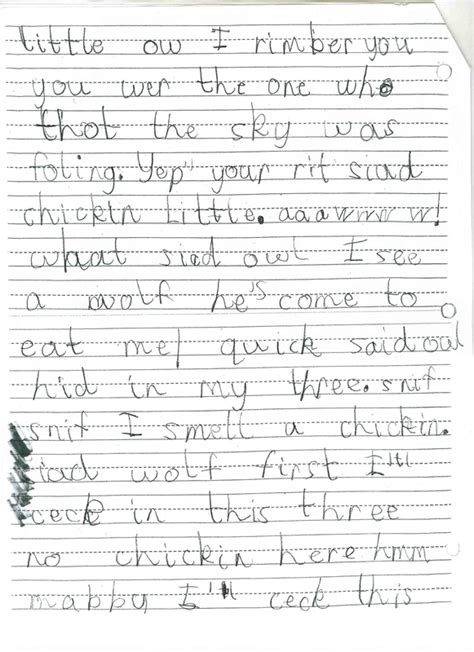 little ow I rimber you
you wer the one who
thot the sky was
foling. Yep" your rit siad
chickin Little. aaawww w!
whaat siad owl I see
a wolf he's come to
eat me! quick said oul
hid in my three. snif
snif I smell a chickin.
siad wolf first I'll
ceck in this three
no chickin here hmm
mabby I'll ceck this